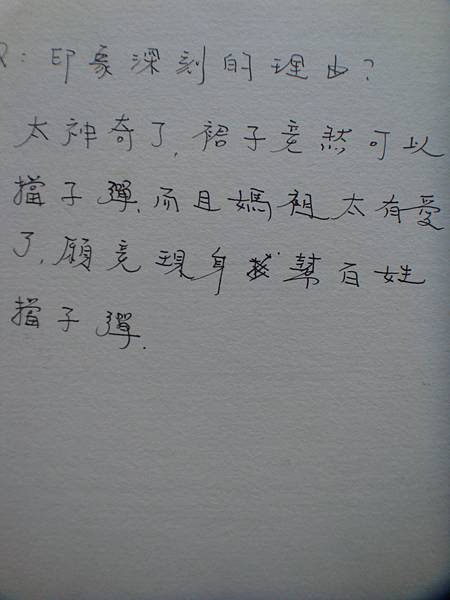 Q：印象深刻的理由？
太神奇了,裙子竟然可以
擋子彈,而且媽祖太有愛
了,願竟現身幫百姓
擋子彈.